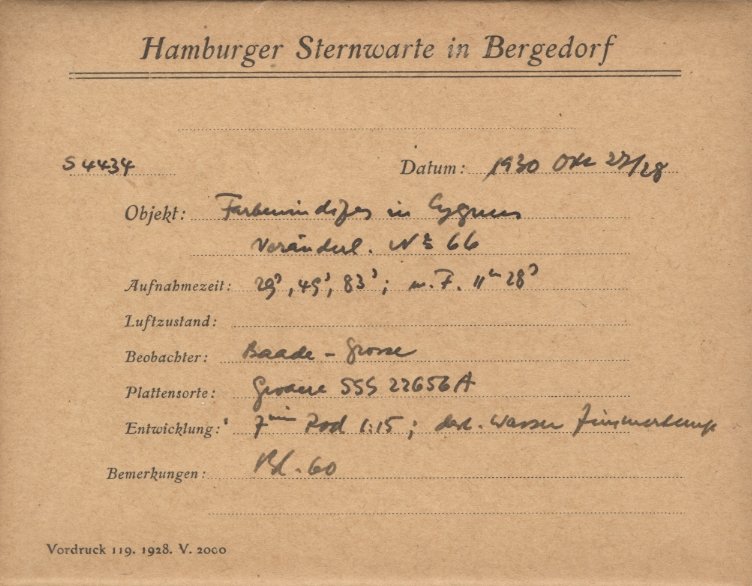 Hamburger Sternwarte in Bergedorf
S 4434 Datum: 1930 Okt 27/28
Objekt: Farbenindizes in Cygnus
Veränderl. N° 66
Aufnahmezeit: 29ˢ, 49ˢ, 83ˢ; m. F. 11ᵐ 28ˢ
Luftzustand:
Beobachter: Baade - Grosse
Plattensorte: SSS 22656A
Entwicklung: 7 min Rod 1:15; dest. Wasser Zimmertemp
Bemerkungen: Bl. 60
Vordruck 119. 1928. V. 2000